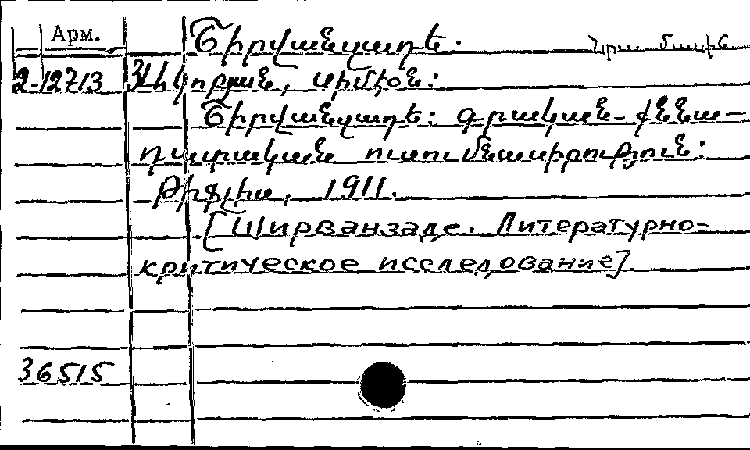 Арм.
Շիրվանզադե. Նրա մասին
2-12713 Հակոբյան, Սիմէօն:
Շիրվանզադե: Գրական-քննա-
դատական ուսումնասիրություն:
Թիֆլիս, 1911.
[Ширванзаде. Литературно-
критическое исследование]
36515